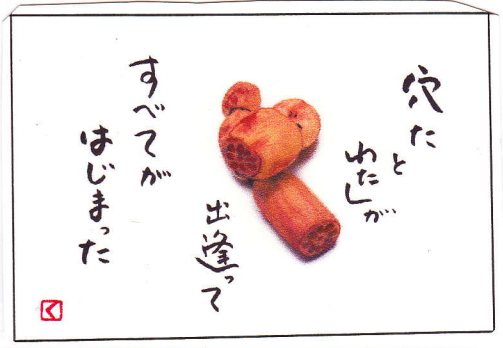 穴た
と
わたしが
出逢って
すべてが
はじまった
く